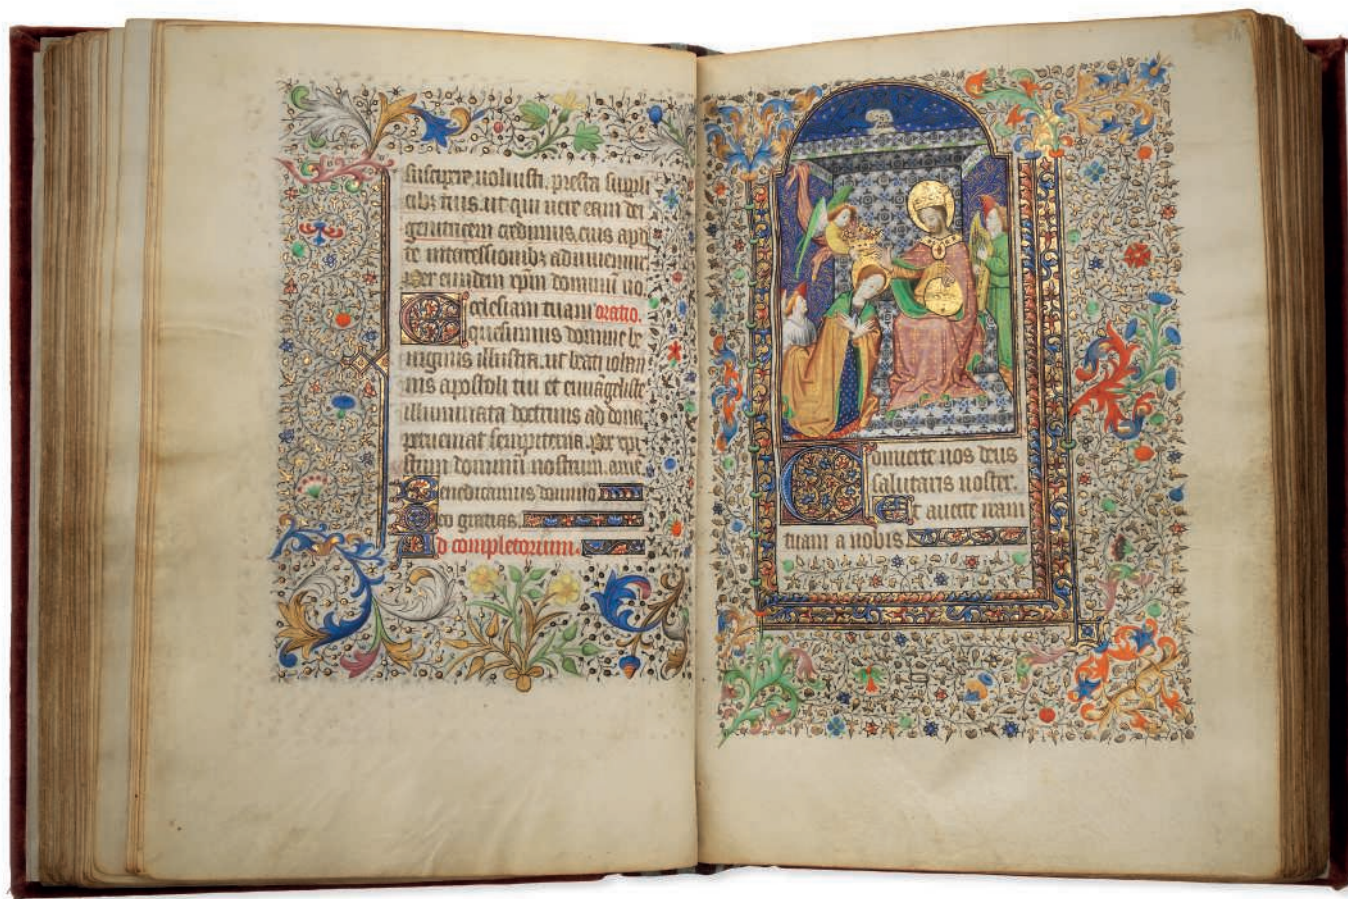 suscipere uoluisti. presta suppli
cibz tuis. ut qui uere eam dei
genitricem credimus, eius apd
te intercessionibz adiuuemur.
Per eundem xpm dominū no.
Ecclesiam tuam oratio.
quesumus domine be
nignus illustra. ut beati iohan
nis apostoli tui et euuāgeliste
illuminata doctrinis ad dona
perueniat sempiterna. Per xpi
stum dominū nostrum. ame
Benedicamus domino
Deo gratias.
Ad completorium.
Conuerte nos deus
salutaris noster.
Et auerte iram
tuam a nobis